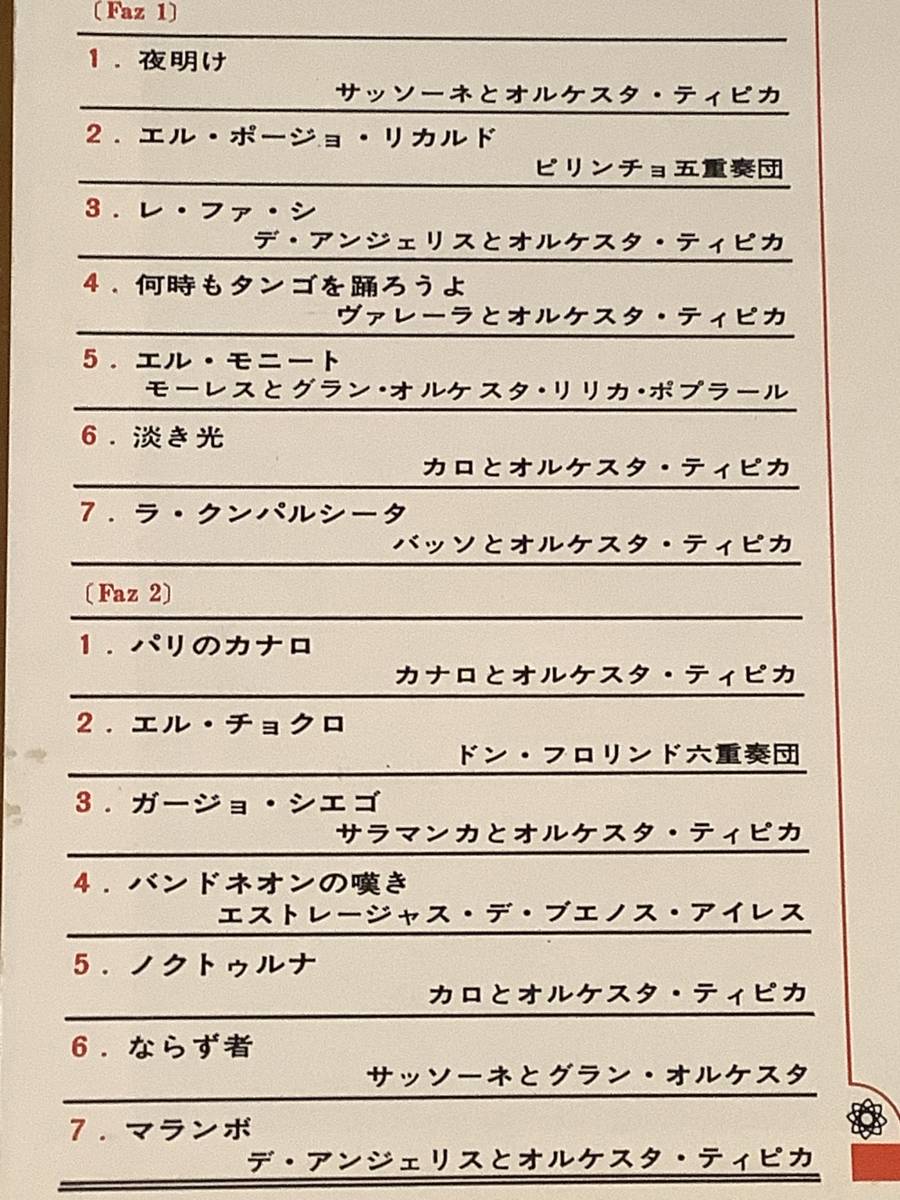 〔Faz 1〕
1. 夜明け
サッソーネとオルケスタ・ティピカ
2. エル・ポージョ・リカルド
ピリンチョ五重奏団
3. レ・ファ・シ
デ・アンジェリスとオルケスタ・ティピカ
4. 何時もタンゴを踊ろうよ
ヴァレーラとオルケスタ・ティピカ
5. エル・モニート
モーレスとグラン・オルケスタ・リリカ・ポプラール
6. 淡き光
カロとオルケスタ・ティピカ
7. ラ・クンパルシータ
バッソとオルケスタ・ティピカ
〔Faz 2〕
1. パリのカナロ
カナロとオルケスタ・ティピカ
2. エル・チョクロ
ドン・フロリンド六重奏団
3. ガージョ・シエゴ
サラマンカとオルケスタ・ティピカ
4. バンドネオンの嘆き
エストレージャス・デ・ブエノス・アイレス
5. ノクトゥルナ
カロとオルケスタ・ティピカ
6. ならず者
サッソーネとグラン・オルケスタ
7. マランボ
デ・アンジェリスとオルケスタ・ティピカ